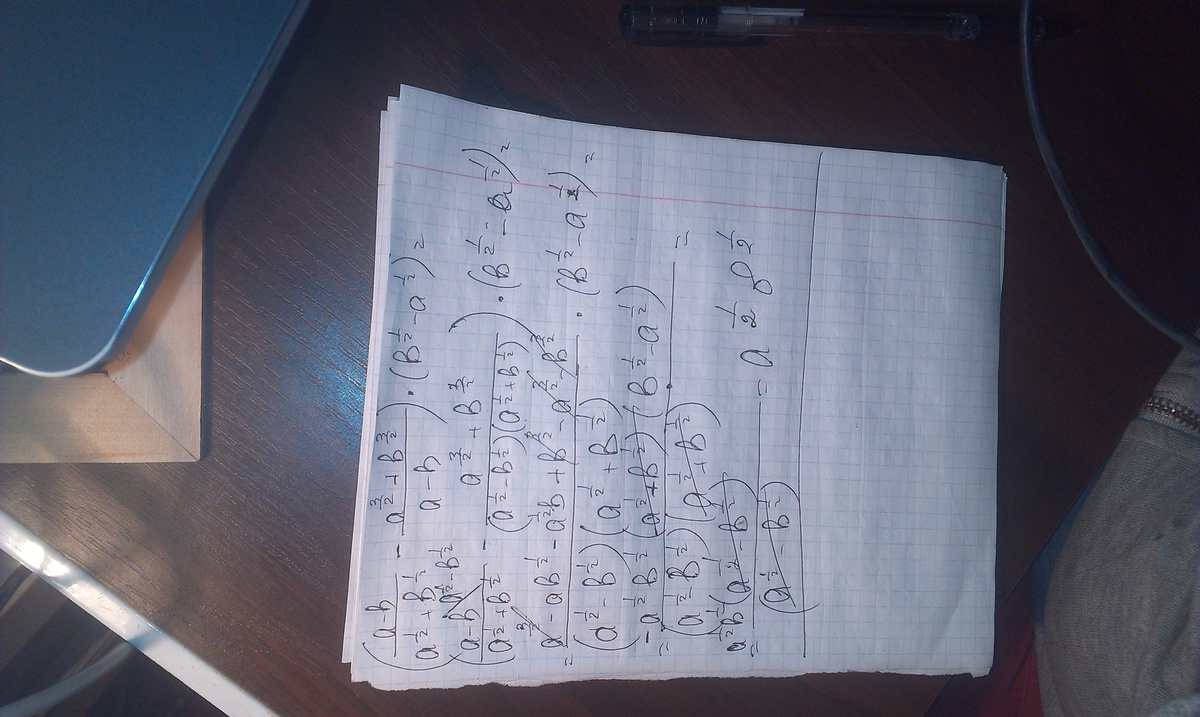 (a-b / (a^(1/2) + b^(1/2)) - (a^(3/2) + b^(3/2)) / (a-b)) · (b^(1/2) - a^(1/2))^2
((a-b)^(a^(1/2) - b^(1/2)) / (a^(1/2) + b^(1/2)) - (a^(3/2) + b^(3/2)) / ((a^(1/2) - b^(1/2))(a^(1/2) + b^(1/2)))) · (b^(1/2) - a^(1/2))^2
= (a^(3/2) - ab^(1/2) - a^(1/2)b + b^(3/2) - a^(3/2) - b^(3/2)) / ((a^(1/2) - b^(1/2))(a^(1/2) + b^(1/2))) · (b^(1/2) - a^(1/2))^2
= (-a^(1/2)b^(1/2)(a^(1/2) + b^(1/2))(b^(1/2) - a^(1/2))) / ((a^(1/2) - b^(1/2))(a^(1/2) + b^(1/2))) =
= (a^(1/2)b^(1/2)(a^(1/2) - b^(1/2))) / (a^(1/2) - b^(1/2)) = a^(1/2) b^(1/2)